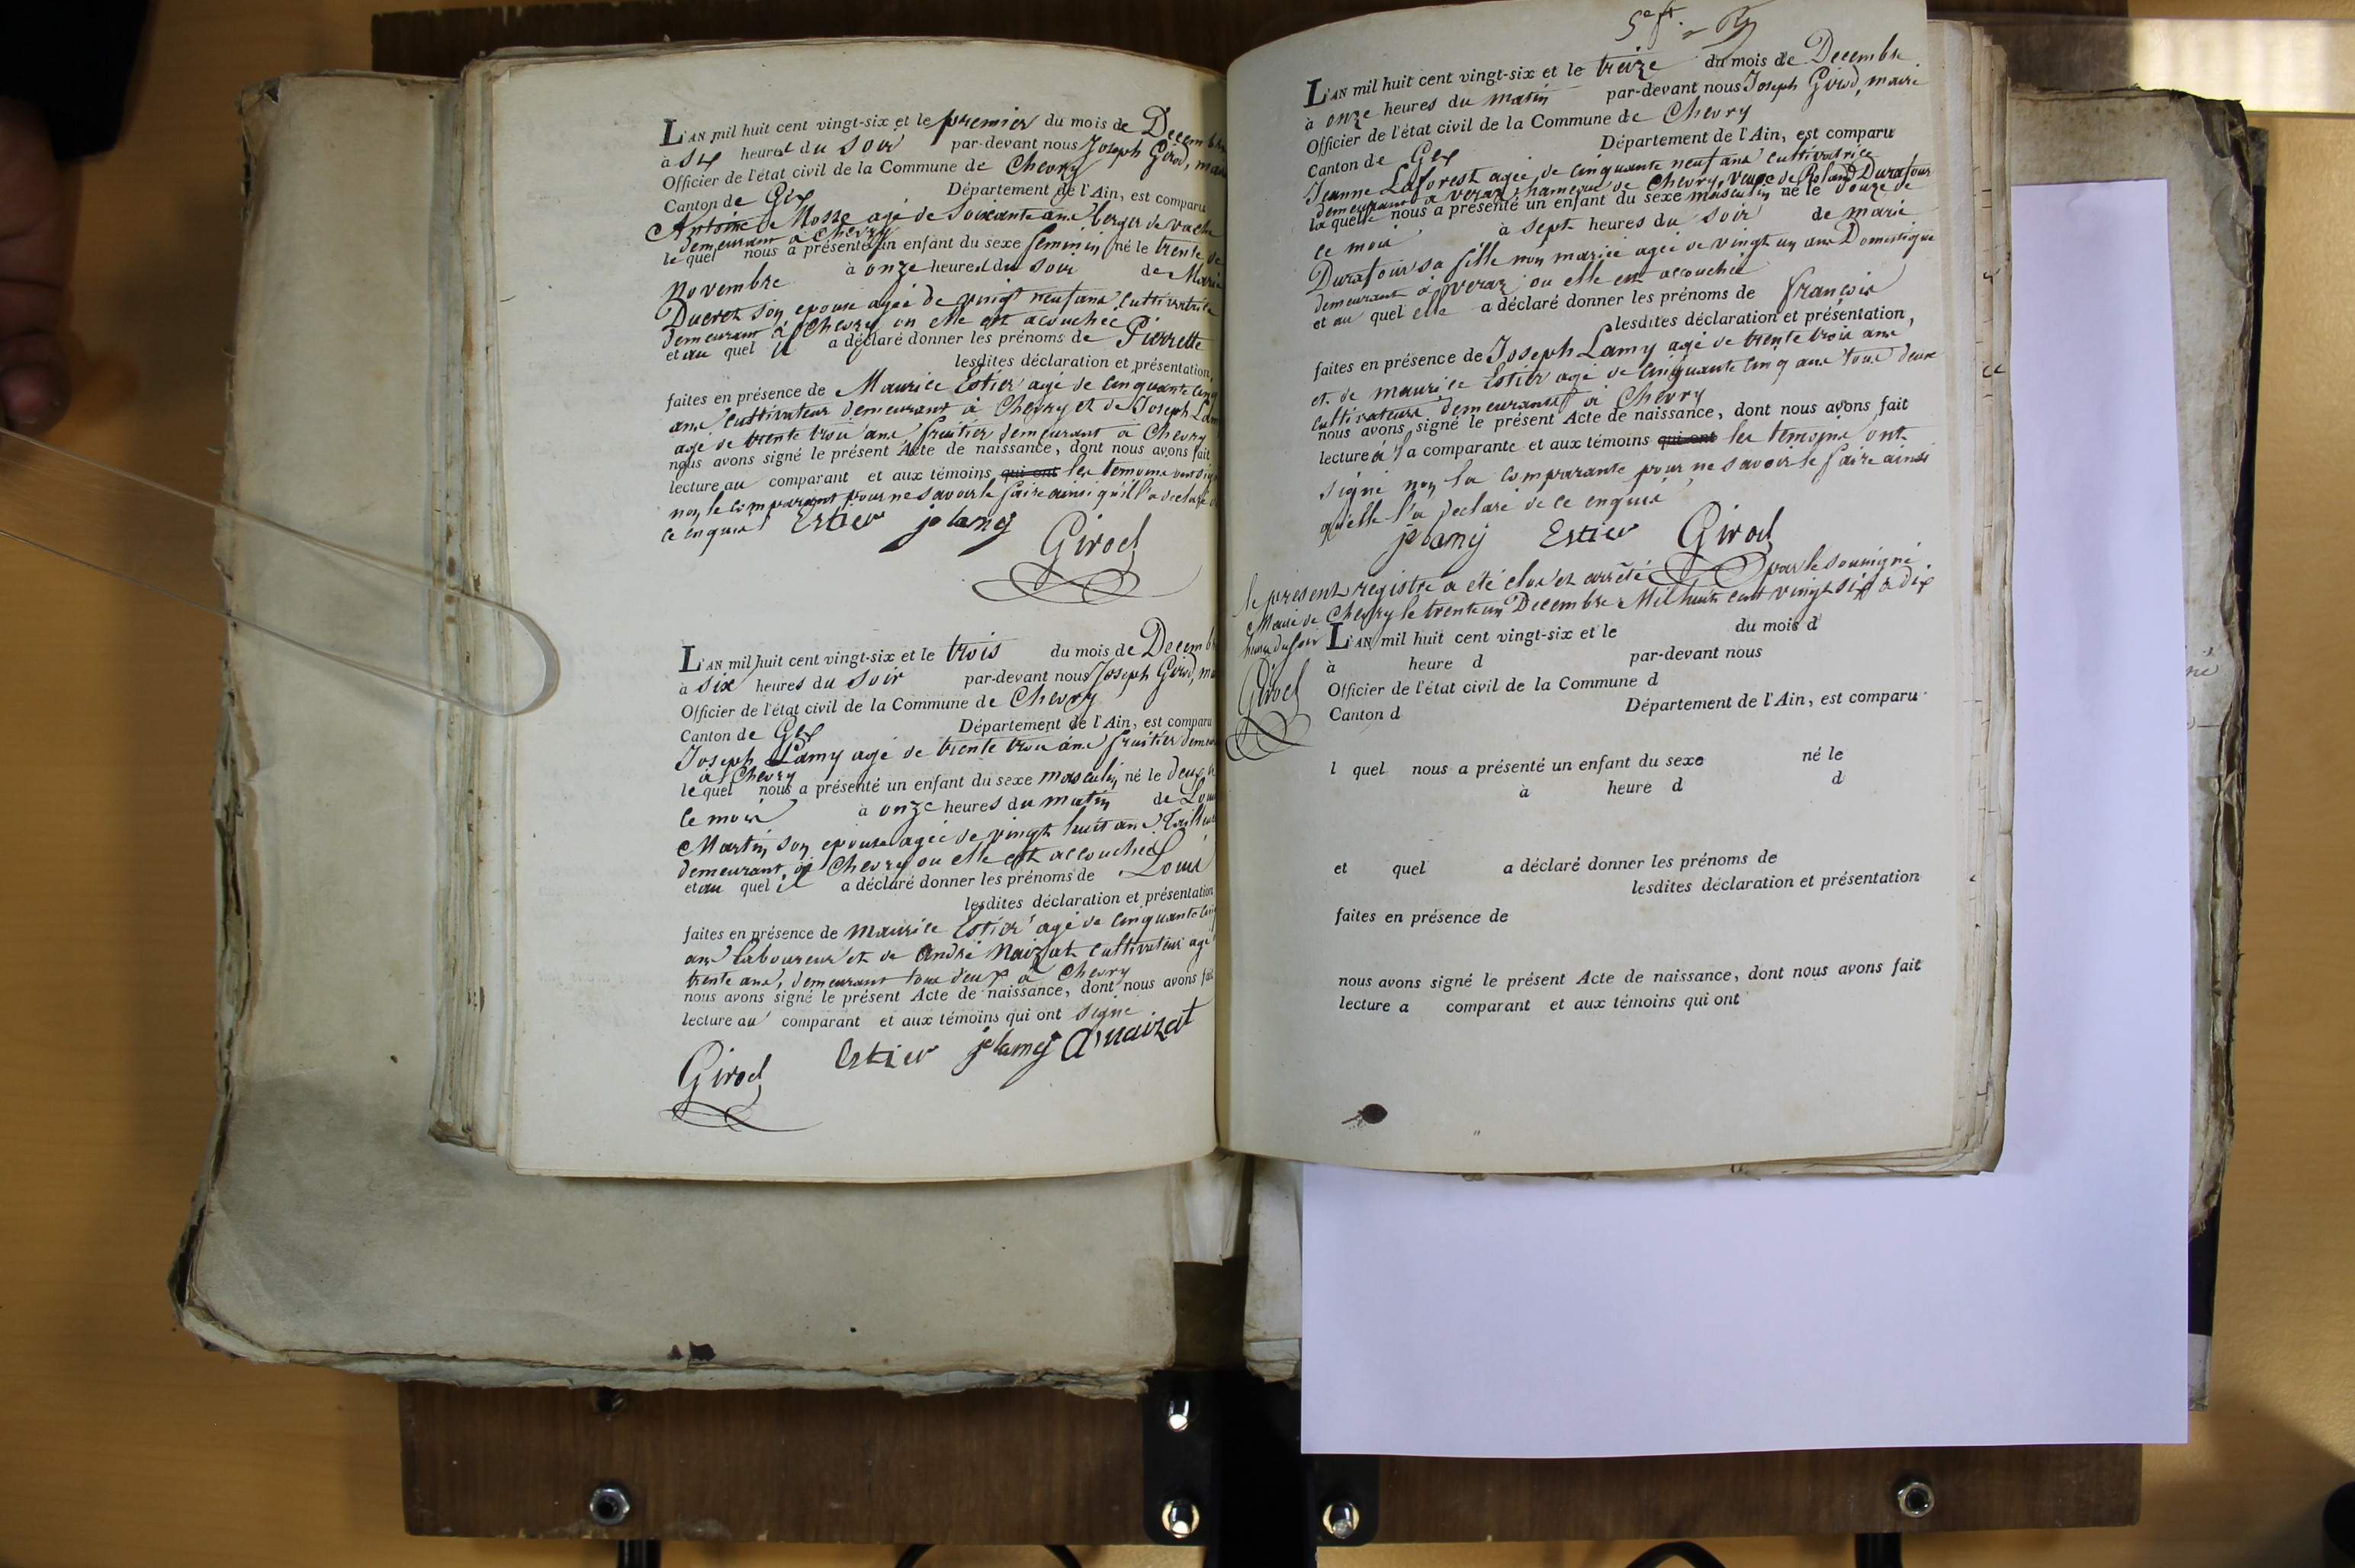 L'AN mil huit cent vingt-six et le premier du mois de Decembre
à six heures du soir par-devant nous Joseph Girod, maire
Officier de l'état civil de la Commune de Chevry
Canton de Gex Département de l'Ain, est comparu
Antoine Mosse agé de soixante ans berger de vache
demeurant à Chevry
le quel nous a présenté un enfant du sexe feminin né le trente de
novembre à onze heures du soir de Marie
Ducret son epouse agée de vingt neuf ans cultivatrice
demeurant à Chevry ou elle est acouchée
et au quel il a déclaré donner les prénoms de Pierrette
lesdites déclaration et présentation,
faites en présence de Maurice Estier agé de cinquante cinq
ans cultivateur demeurant à Chevry et de Joseph Lamy
agé de trente trois ans fruitier demeurant a Chevry
nous avons signé le présent Acte de naissance, dont nous avons fait
lecture au comparant et aux témoins qui ont les temoins ont signé
non le comparant pour ne savoir le faire ainsi qu'il l'a declaré de
ce enquis Estier jo lamy
Girod
L'AN mil huit cent vingt-six et le trois du mois de Decembre
à six heures du soir par-devant nous Joseph Girod, maire
Officier de l'état civil de la Commune de Chevry
Canton de Gex Département de l'Ain, est comparu
Joseph Lamy agé de trente trois ans fruitier demeurant
à Chevry
le quel nous a présenté un enfant du sexe masculin né le deux de
ce mois à onze heures du matin de Louise
Martin son epouse agée de vingt huit ans
demeurant à Chevry ou elle est accouchée
et au quel il a déclaré donner les prénoms de Louis
lesdites déclaration et présentation
faites en présence de maurice Estier agé de cinquante cinq
ans laboureur et de André Naizat cultivateur agé
trente ans, demeurant tous deux à Chevry
nous avons signé le présent Acte de naissance, dont nous avons fait
lecture au comparant et aux témoins qui ont signé
Girod Estier jo lamy A naizat
L'AN mil huit cent vingt-six et le treize du mois de Decembre
à onze heures du matin par-devant nous Joseph Girod, maire
Officier de l'état civil de la Commune de Chevry
Canton de Gex Département de l'Ain, est comparu
Jeanne Laforest agée de cinquante neuf ans cultivatrice
demeurant à veraz, hameau de Chevry, veuve de Roland Durafour
la quelle nous a présenté un enfant du sexe masculin né le douze de
ce mois à sept heures du soir de marie
Durafour sa fille non mariée agée de vingt un ans Domestique
demeurant à veraz ou elle est accouchée
et au quel elle a déclaré donner les prénoms de françois
lesdites déclaration et présentation,
faites en présence de Joseph Lamy agé de trente trois ans
et de maurice Estier agé de cinquante cinq ans tous deux
cultivateurs demeurants à Chevry
nous avons signé le présent Acte de naissance, dont nous avons fait
lecture à la comparante et aux témoins qui ont les temoins ont
signé non la comparante pour ne savoir le faire ainsi
qu'elle l'a declaré de ce enquis
jo lamy Estier Girod
le present registre a été clos et arrêté par le soussigné
Maire de Chevry le trente un Decembre Mil huit cent vingt six à dix
heures du soir
Girod
L'AN mil huit cent vingt-six et le du mois d
à heure d par-devant nous
Officier de l'état civil de la Commune d
Canton d Département de l'Ain, est comparu
l quel nous a présenté un enfant du sexe né le
à heure d d
et quel a déclaré donner les prénoms de
lesdites déclaration et présentation
faites en présence de
nous avons signé le présent Acte de naissance, dont nous avons fait
lecture a comparant et aux témoins qui ont